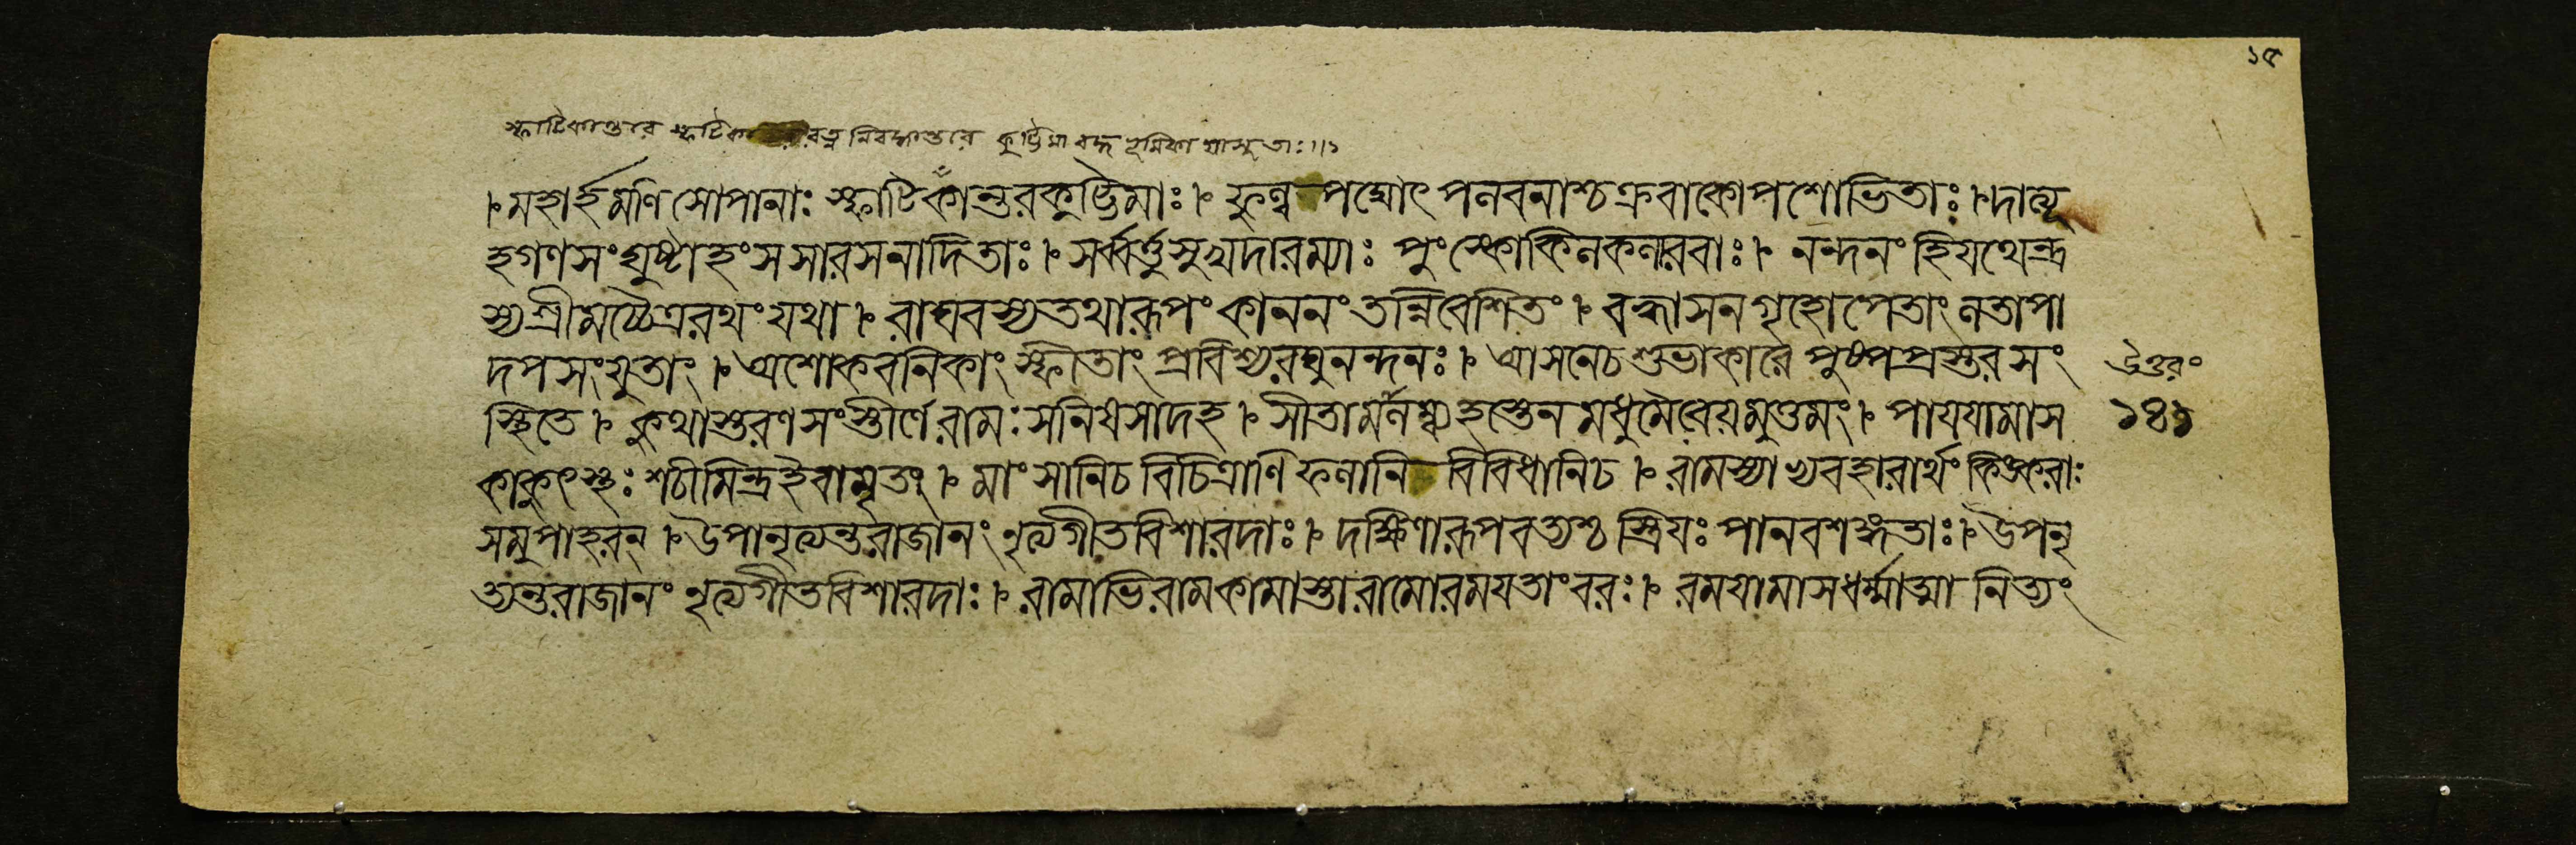 ১৫
স্ফাটিকান্তরে স্ফাটিক রত্ন নিবদ্ধান্তরে কুট্টিমা বদ্ধ ভূমিকা যাসু তাঃ ॥১
। মহার্হমণিসোপানাঃ স্ফাটিকাঁন্তরকুট্টিমাঃ । ফুল্ল পদ্মোৎপলবনাশ্চক্রবাকোপশোভিতাঃ । দাত্যূ
হগণসংঘুষ্টাহংসসারসনাদিতাঃ । সর্ব্বর্ত্তুসুখদারম্যাঃ পুংস্কোকিলকলারবাঃ । নন্দনংহিযথেন্দ্র
স্যশ্রীমচ্চৈত্ররথংযথা । রাঘবস্যতথারূপংকাননংতন্নিবেশিতং । বহ্বাসনগৃহোপেতাংলতাপা
দপসংযুতাং । অশোকবনিকাংস্ফীতাংপ্রবিশ্যরঘুনন্দনঃ । আসনেচশুভাকারেপুষ্পপ্রস্তরসং
উত্তরং
স্থিতে । কুথাস্তরণসংস্তীর্ণেরামঃসনিষসাদহ । সীতামালম্ব্যহস্তেনমধুমৈরেয়মুত্তমং । পায়যামাস
১৪১
কাকুৎস্থঃশচীমিন্দ্রইবামৃতং । মাংসানিচবিচিত্রাণিফলানি বিবিধানিচ । রামস্যাভ্যবহারার্থংকিঙ্করাঃ
সমুপাহরন্ । উপানৃত্যন্তরাজানংনৃত্যগীতবিশারদাঃ । দক্ষিণারূপবত্যশ্চস্ত্রিয়ঃপানবশঙ্গতাঃ । উপনৃ
ত্যন্তরাজানংনৃত্যগীতবিশারদাঃ । রামাভিরামকামাস্তারামোরময়তাংবরঃ । রময়ামাসধর্ম্মাত্মানিত্যং